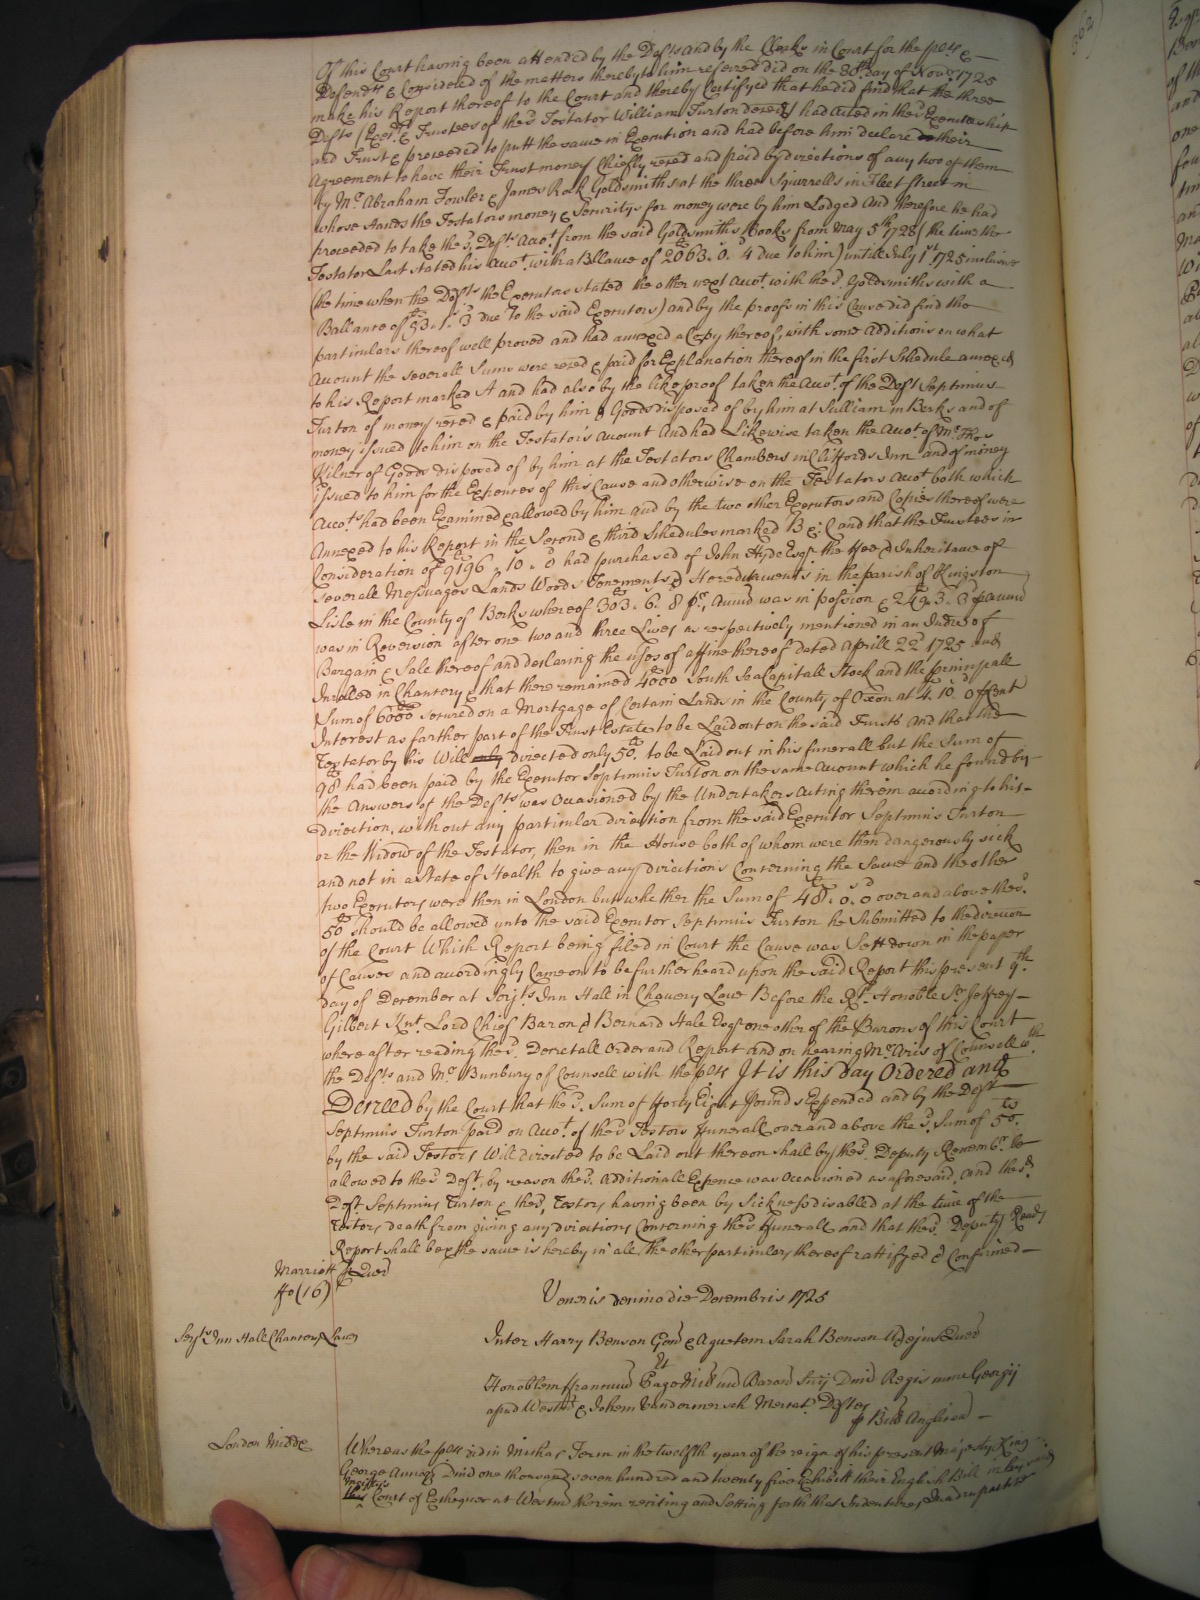 Of this Court having been attended by the Defts and by the Clerks in Court for the plts &
Defendts & Considered of the matters thereby to him referred did on the 30th day of Novr 1725
make his Report thereof to the Court and thereby Certifyed that he did find that the three
Defts Exectrs & Trustees of the sd Testator William Furton deceasd had Acted in the sd Executorship
and Trust & proceeded to putt the same in Execution and had before him declared their
Agreement to have their Trust money Chiefly reced and paid by directions of any two of them
by Mr Abraham Fowler & James Rock Goldsmiths at the three Squirrells in Fleet Street in
whose Hands the Testators money & Securitys for money were by him Lodged And therefore he had
proceeded to take the sd Defts Acct from the said Goldsmiths Books from May 5th 1728 (the time the
Testator Last stated his Acct with a Ballance of 2063. 0. 4 due to him) untill July 1st 1725 inclusive
(the time when the Defts the Executors stated the other next Acct with the sd Goldsmiths with a
Ballance of 53. 1. 3 due to the said Executors) and by the proofs in this Cause did find the
particulars thereof well proved and had annexed a Copy thereof, with some Additions on what
Account the severall Sums were reced & paid for Explanation thereof in the first Schedule annexed
to his Report marked A and had also by the like proof taken the Acct of the Deft Septimus
Furton of money reced & paid by him & Goods disposed of by him at Sulham in Berks and of
money issued to him on the Testators Account And had Likewise taken the Acct of Mr Thos
Kilner of Goods disposed of by him at the Testators Chambers in Cliffords Inn and of money
issued to him for the Expences of this Cause and otherwise on the Testators Acct both which
Accts had been Examined & allowed by him and by the two other Executors and Copies thereof were
Annexed to his Report in the Second & third Schedules marked B & C and that the Trustees in
Consideration of 9196. 10. 0 had purchased of John Hyde Esqr the Fee & Inheritance of
severall Messuages Lands Woods Tenements & Hereditaments in the parish of Kingston
Lisle in the County of Berks whereof 303. 6. 8 pr Annu was in possion & 249. 3. 3 p annu
was in Reversion after one two and three Lives as respectively mentioned in an Indre of
Bargain & Sale thereof and declaring the uses of a ffine thereof dated Aprill 22d 1725 and
Inrolled in Chancery & that there remained 4000 South Sea Capitall Stock and the principall
Sum of 6000 secured on a Mortgage of Certain Lands in the County of Oxon at 4. 10. 0 p Cent
Interest as farther part of the Trust Estate to be Laid out on the said Trusts And that the
Testator by his Will only directed only 50 to be Laid out in his funerall but the Sum of
98 had been paid by the Executor Septimus Furton on the same Account which he found by
the Answers of the Defts was Occasioned by the Undertakers acting therein according to his
direction, without any particular direction from the said Executor Septimus Furton
or the Widow of the Testator, then in the House both of whom were then dangerously sick
and not in a State of Health to give any directions Concerning the Same and the other
two Executors were then in London but whether the Sum of 48. 0. 0 over and above the sd
50 should be allowed unto the said Executor Septimus Furton he Submitted to the direction
of the Court Which Report being filed in Court the Cause was Sett down in the paper
of Causes and accordingly Came on to be further heard upon the said Report this present 9th
day of December at Serjts Inn Hall in Chancery Lane Before the Rt Honoble Sr Jeffrey
Gilbert Knt Lord Chief Baron & Bernard Hale Esqr one other of the Barons of this Court
where after reading the sd Decretall Order and Report and on hearing Mr Aris of Counsell wth
the Defts and Mr Bunbury of Counsell with the plts It is this day Ordered and
Decreed by the Court that the sd Sum of Forty Eight pounds Expended and by the Deft
Septimus Furton paid on Acct of the sd Testors funerall over and above the sd Sum of 50
by the said Testors Will directed to be Laid out thereon shall by the sd Deputy Rememb.r be
allowed to the sd Deft, by reason the sd Additionall Expence was Occasioned as aforesaid, and the sd
Deft Septimus Furton & the sd Testors having been by Sickness disabled at the time of the
Testors death from giving any directions Concerning the sd funerall and that the sd Deputys
Report shall be & the same is hereby in all the other particulars thereof rattifyed & Confirmed
Marriott p Quer
ffo (16)
Veneris decimo die Decembris 1725
Serjts Inn Hall Chancery Lane
Inter Harry Benson Gen & Sarah Benson Quer
Et
Honoblem Baron Regis nunc Georgij
apud Westm & Johem Vandermersh Mercat. Deftes
p Bill Anglican
London Middx
Whereas the plts did in Michas Term in the twelfth year of the reign of his present Majesty King
George Annoq Dmi one thousand seven hundred and twenty five Exhibitt their English Bill in
this Court of Exchequer at Westmr therein reciting and Setting forth that Indentures